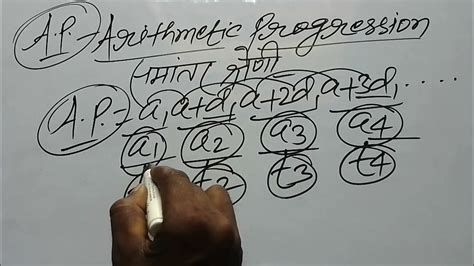 A.P.→ Arithmetic Progression
समांतर श्रेणी
A.P.→ a, a+d, a+2d, a+3d, .....
a1 a2 a3 a4
t2 t3 t4